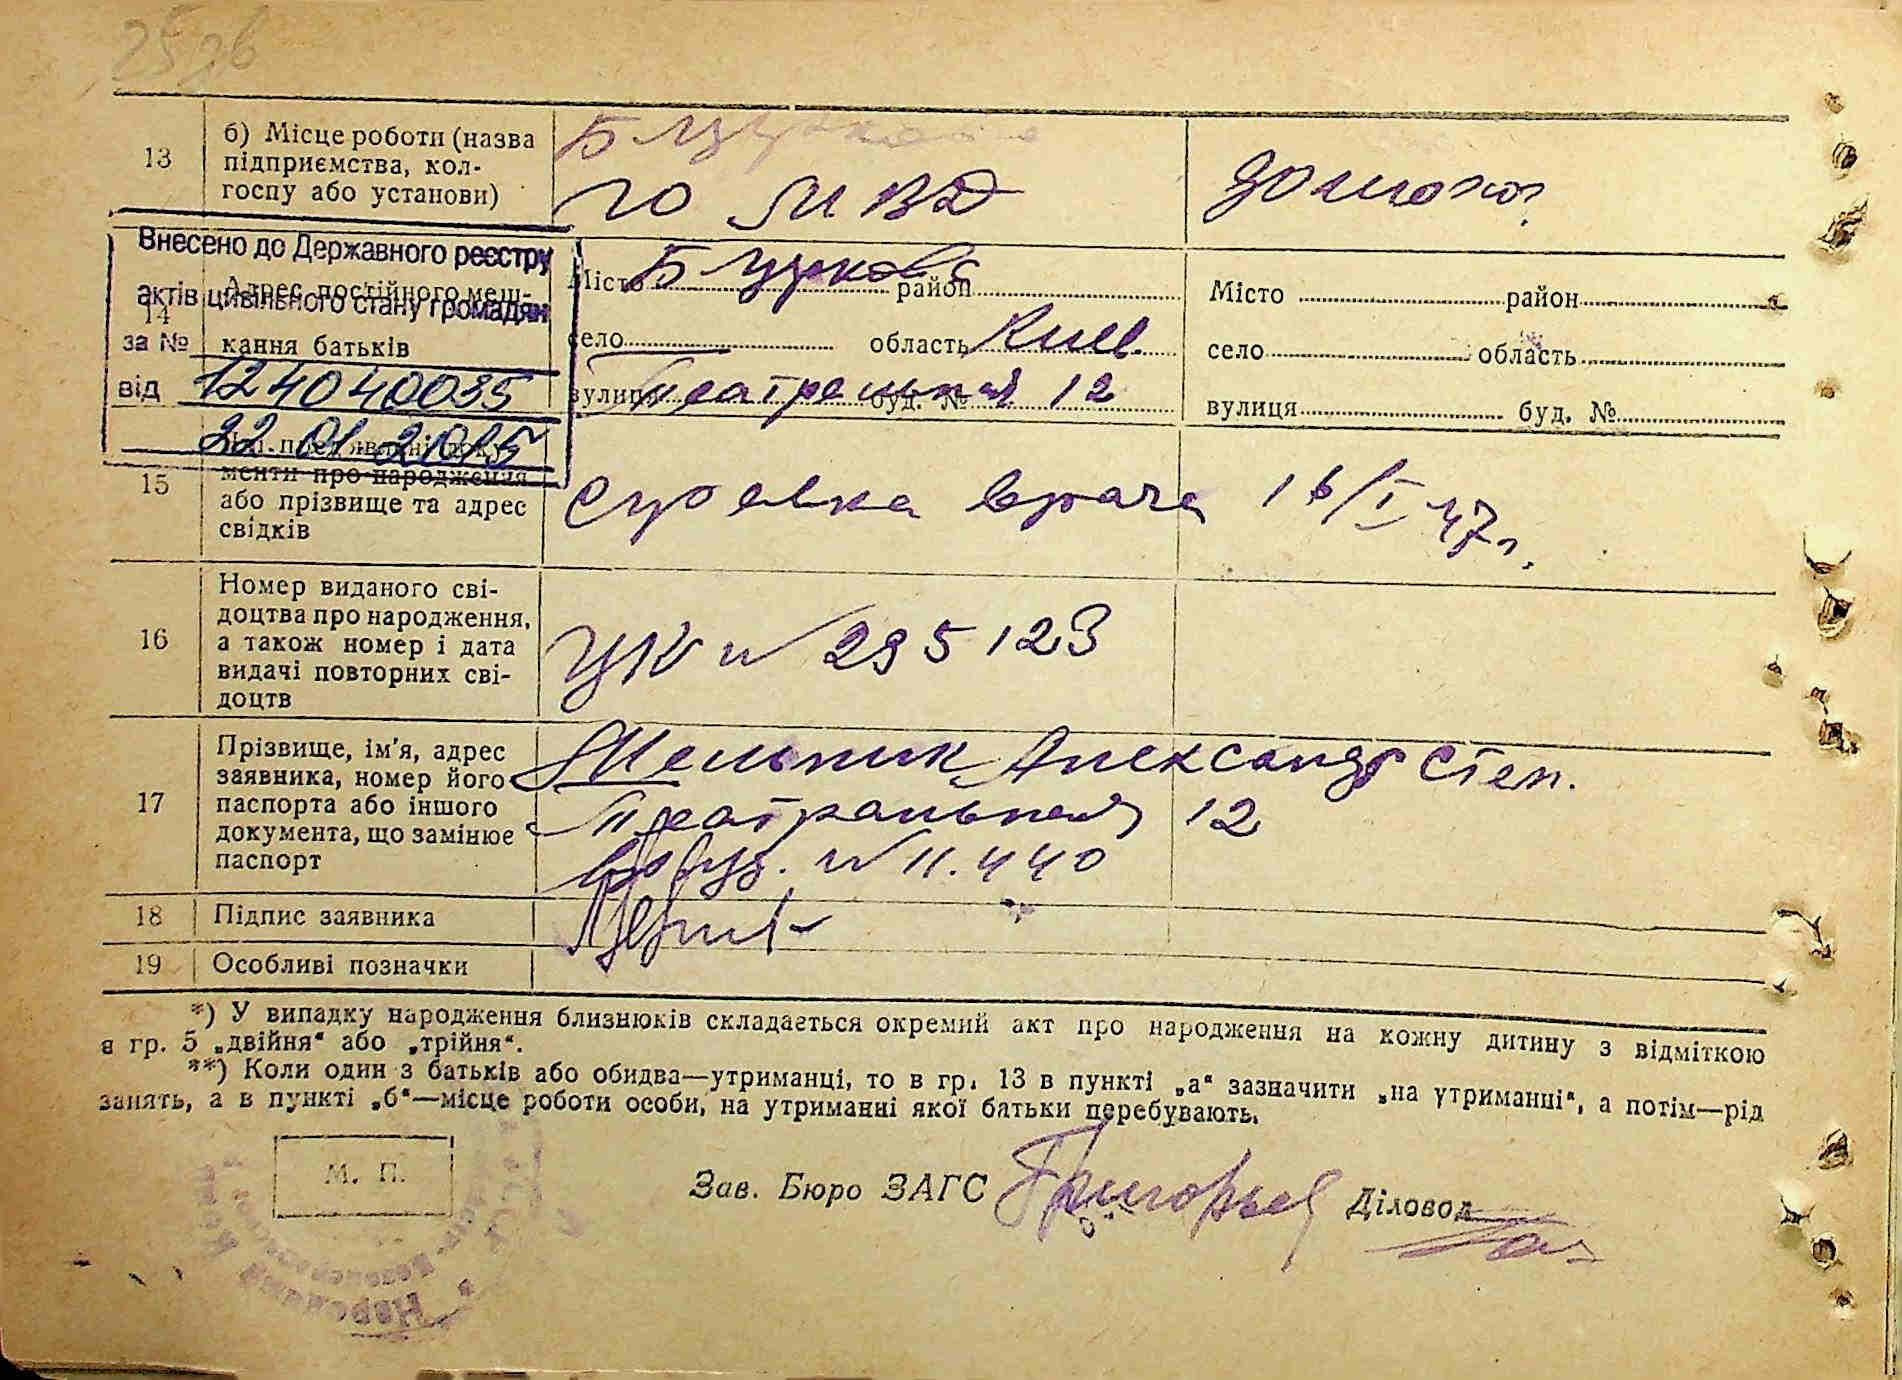 13
б) Місце роботи (назва
підприємства, кол-
госпу або установи)
Б Церковское
ГО МВД
домохоз.
Внесено до Державного реєстру
актів цивільного стану громадян
за №
від 124040035
22.01.2015
14
Адрес постійного меш-
кання батьків
Місто Б Церковь район
село область Киев.
вулиця Театральная буд. № 12
Місто район
село область
вулиця буд. №
15
менти про народження
або прізвище та адрес
свідків
Справка врача 16/I 47г.
16
Номер виданого сві-
доцтва про народження,
а також номер і дата
видачі повторних сві-
доцтв
№ 295123
17
Прізвище, ім'я, адрес
заявника, номер його
паспорта або іншого
документа, що замінює
паспорт
Мельник Александр Степ.
Театральная 12
№ 11.440
18
Підпис заявника
19
Особливі позначки
*) У випадку народження близнюків складається окремий акт про народження на кожну дитину з відміткою
в гр. 5 „двійня“ або „трійня“.
**) Коли один з батьків або обидва—утриманці, то в гр. 13 в пункті „а“ зазначити „на утриманні“, а потім—рід
занять, а в пункті „б“—місце роботи особи, на утриманні якої батьки перебувають.
М. П.
Зав. Бюро ЗАГС Григорьев Діловод